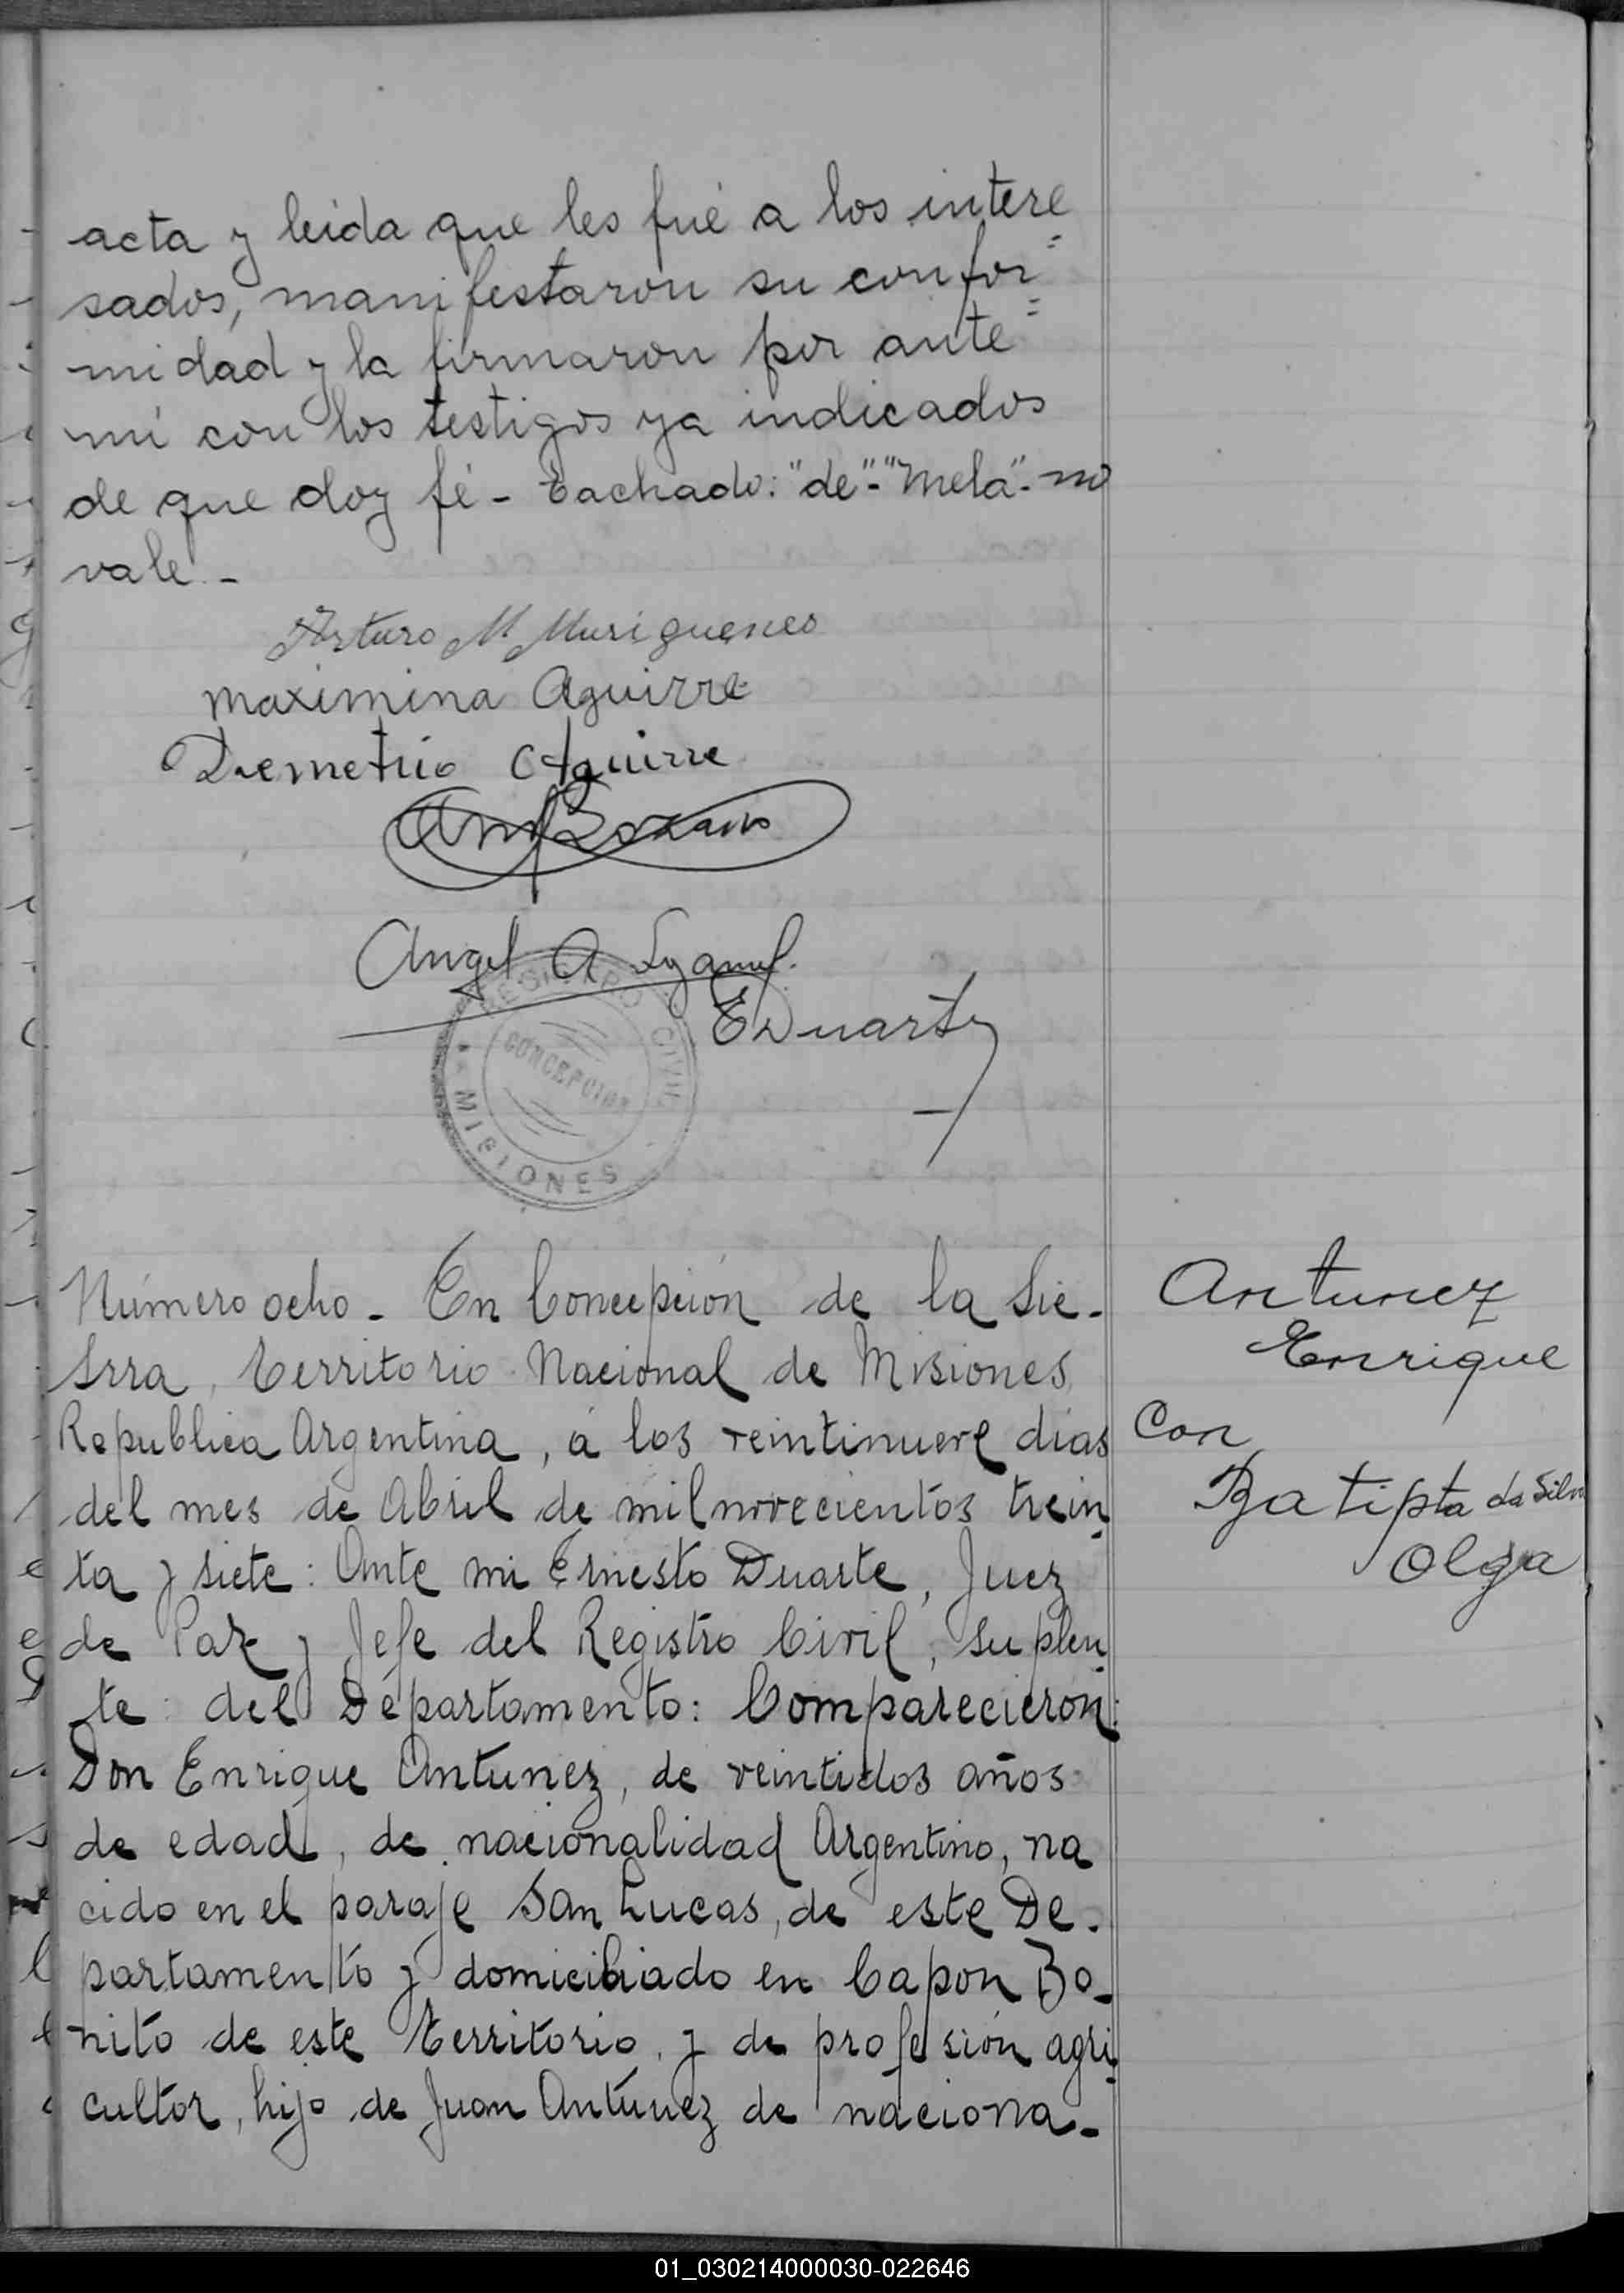 acta y leida que les fué a los intere=
sados, manifestaron su confor=
midad y la firmaron por ante
mi con los testigos ya indicados
de que doy fé - tachado: "de" - "mela" - no
vale -
Arturo M
Maximina Aguirre
Demetrio Aguirre
Angel A
EDuarte
REGISTRO CIVIL
CONCEPCION
MISIONES
Número ocho - En Concepción de la Sie-
rra, territorio Nacional de Misiones
Republica Argentina, á los veintinueve dias
del mes de Abril de mil novecientos trein
ta y siete: Ante mi Ernesto Duarte, Juez
de Paz y Jefe del Registro Civil, suplen
te del Departamento: Comparecieron:
Don Enrique Antunez, de veintidos años
de edad, de nacionalidad Argentino, na
cido en el paraje San Lucas, de este De-
partamento y domiciliado en Capon Bo-
nito de este territorio, y de profesión agri
cultor, hijo de Juan Antunez de naciona-
Antunez
Enrique
Con
Batipta da Silva
Olga
01_030214000030-022646